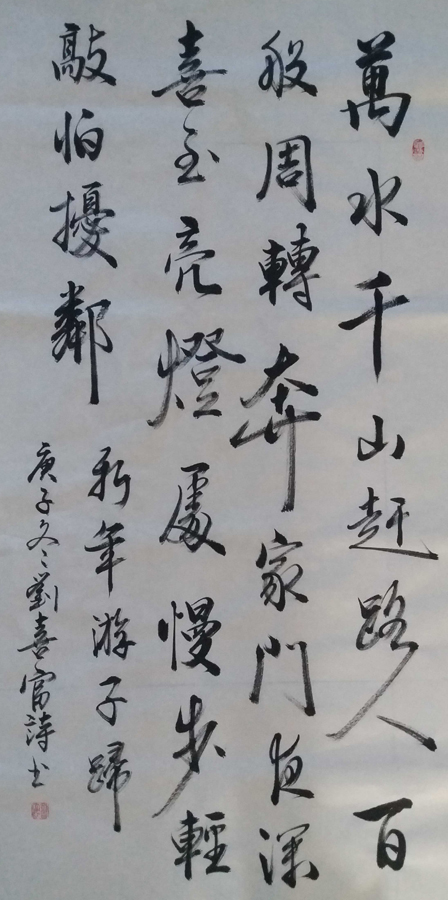 萬水千山赶路人百
般周轉奔家門夜深
喜至亮燈處慢步輕
敲怕擾鄰
新年游子歸
庚子冬劉喜富詩書